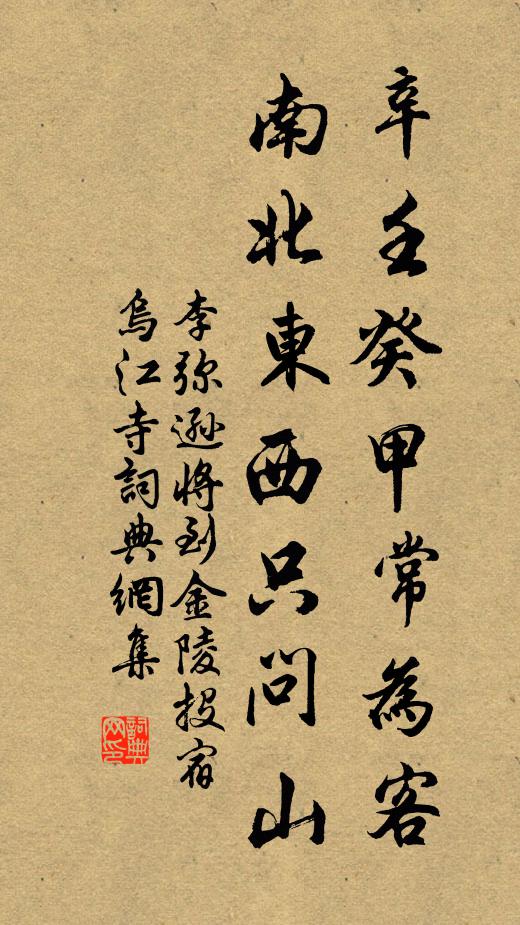 辛壬癸甲常為客
南北東西只問山
李弥遜將到金陵投宿
烏江寺詞典網集
詞典网印